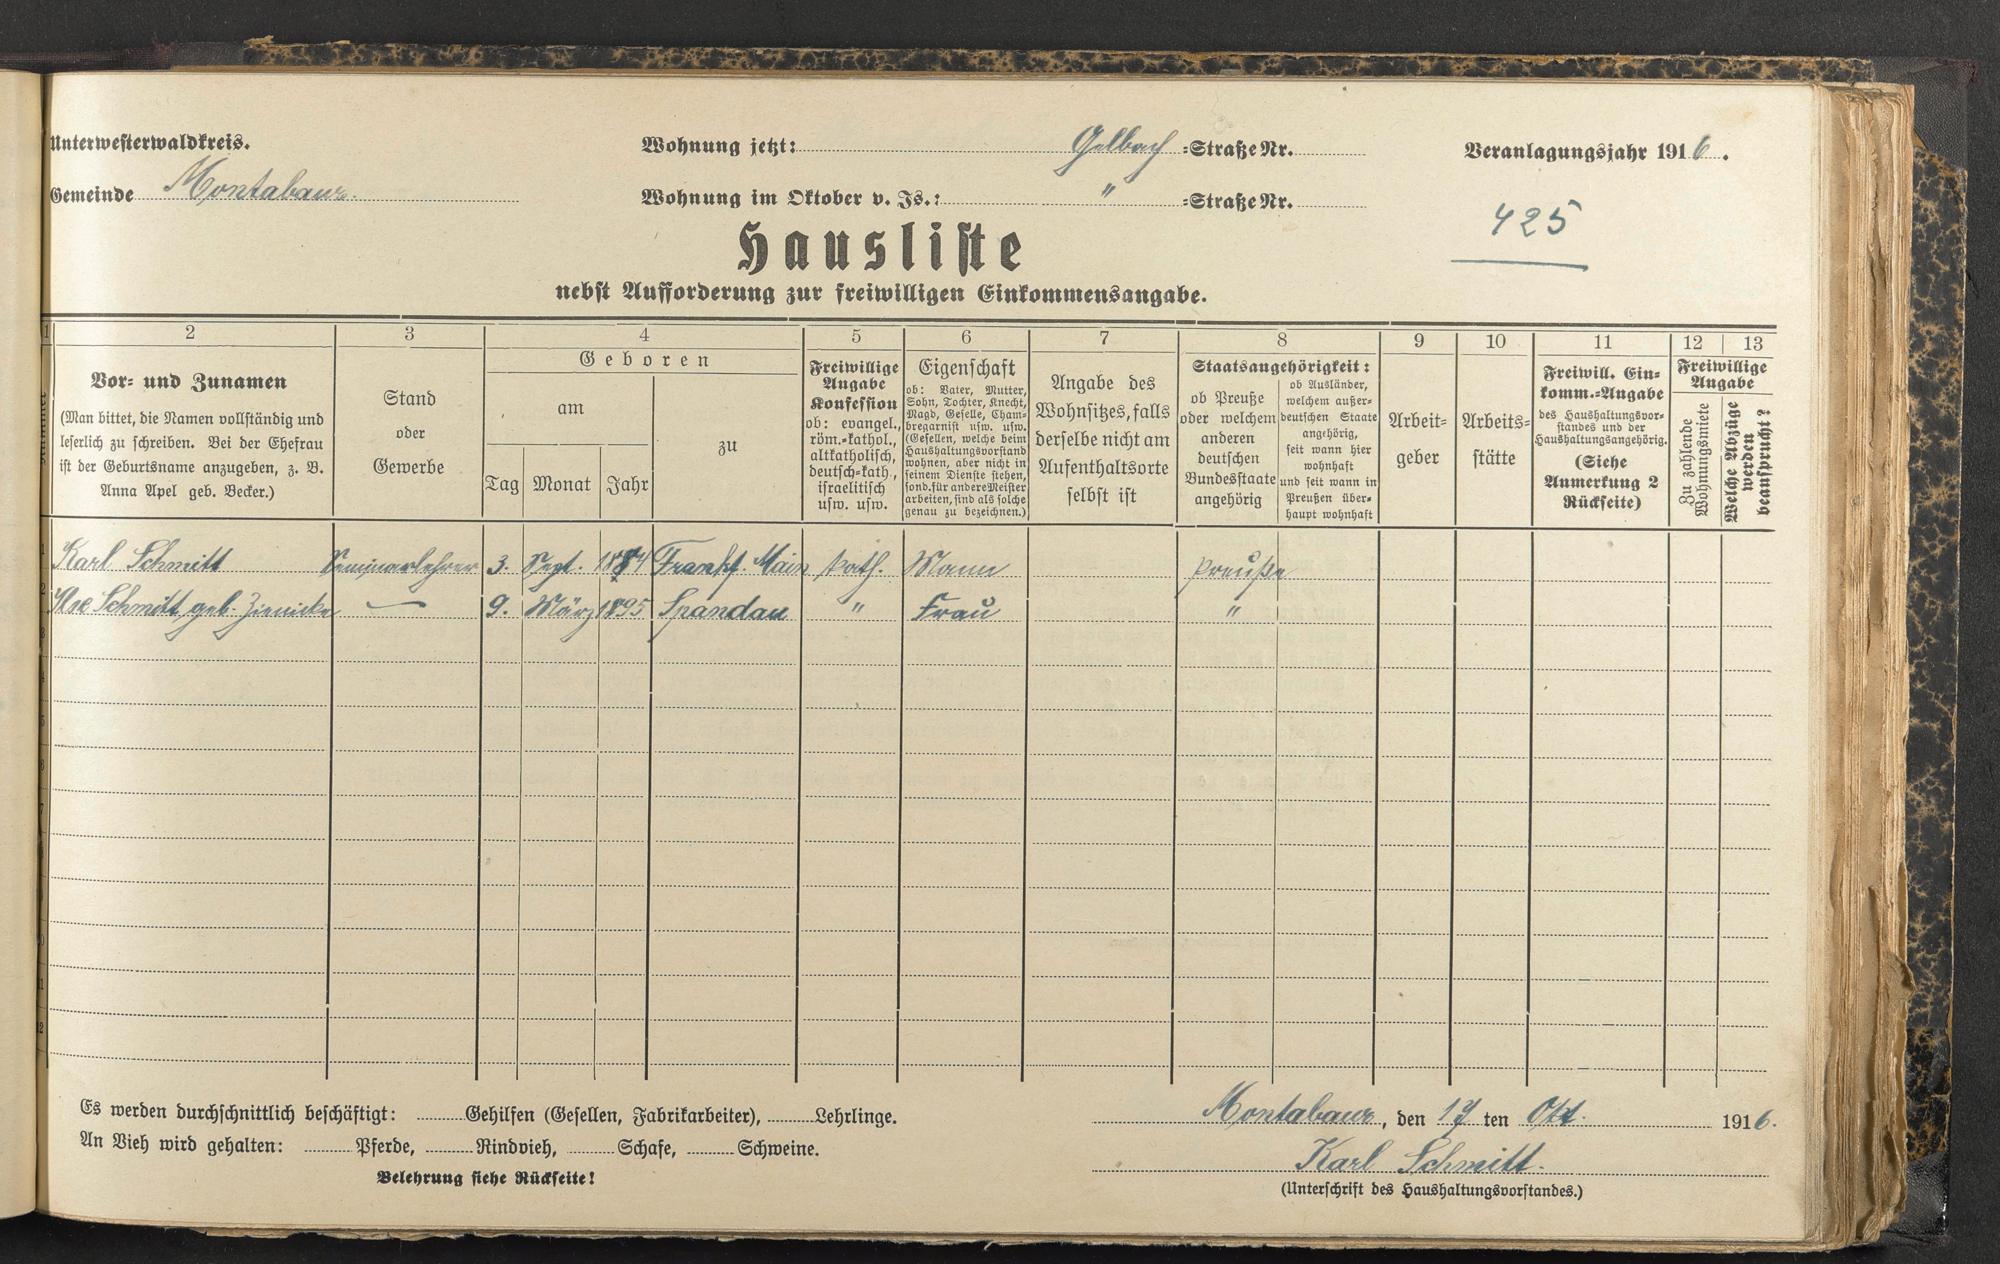 Unterwesterwaldkreis.
Gemeinde Montabaur.
Wohnung jetzt: Gelbach =Straße Nr.
Wohnung im Oktober v. Js.: " =Straße Nr.
Veranlagungsjahr 1916.
425
Hausliste
nebst Aufforderung zur freiwilligen Einkommensangabe.
1 2 3 4 5 6 7 8 9 10 11 12 13
Vor- und Zunamen
(Man bittet, die Namen vollständig und
leserlich zu schreiben. Bei der Ehefrau
ist der Geburtsname anzugeben, z. B.
Anna Apel geb. Becker.)
Stand
oder
Gewerbe
Geboren
am
Tag Monat Jahr
zu
Freiwillige
Angabe
Konfession
ob: evangel.,
röm.-kathol.,
altkatholisch,
deutsch-kath.,
israelitisch
usw. usw.
Eigenschaft
ob: Vater, Mutter,
Sohn, Tochter, Knecht,
Magd, Geselle, Cham-
bregarnist usw. usw.
(Gesellen, welche beim
Haushaltungsvorstand
wohnen, aber nicht in
seinem Dienste stehen,
sond. für andere Meister
arbeiten, sind als solche
genau zu bezeichnen.)
Angabe des
Wohnsitzes, falls
derselbe nicht am
Aufenthaltsorte
selbst ist
Staatsangehörigkeit:
ob Preuße
oder welchem
anderen
deutschen
Bundesstaate
angehörig
ob Ausländer,
welchem außer-
deutschen Staate
angehörig,
seit wann hier
wohnhaft
und seit wann in
Preußen über-
haupt wohnhaft
Arbeit-
geber
Arbeits-
stätte
Freiwill. Ein-
komm.-Angabe
des Haushaltungsvor-
standes und der
Haushaltungsangehörig.
(Siehe
Anmerkung 2
Rückseite)
Freiwillige
Angabe
Zu zahlende
Wohnungsmiete
Welche Abzüge
werden
beansprucht?
Karl Schmitt Seminarlehrer 3. Sept. 1884 Frankf. Main kath. Mann Preuße
Schmitt geb. Zienicke — 9. März 1895 Spandau " Frau "
Es werden durchschnittlich beschäftigt: Gehilfen (Gesellen, Fabrikarbeiter), Lehrlinge.
An Vieh wird gehalten: Pferde, Rindvieh, Schafe, Schweine.
Belehrung siehe Rückseite!
Montabaur, den 17 ten Okt. 1916.
Karl Schmitt.
(Unterschrift des Haushaltungsvorstandes.)